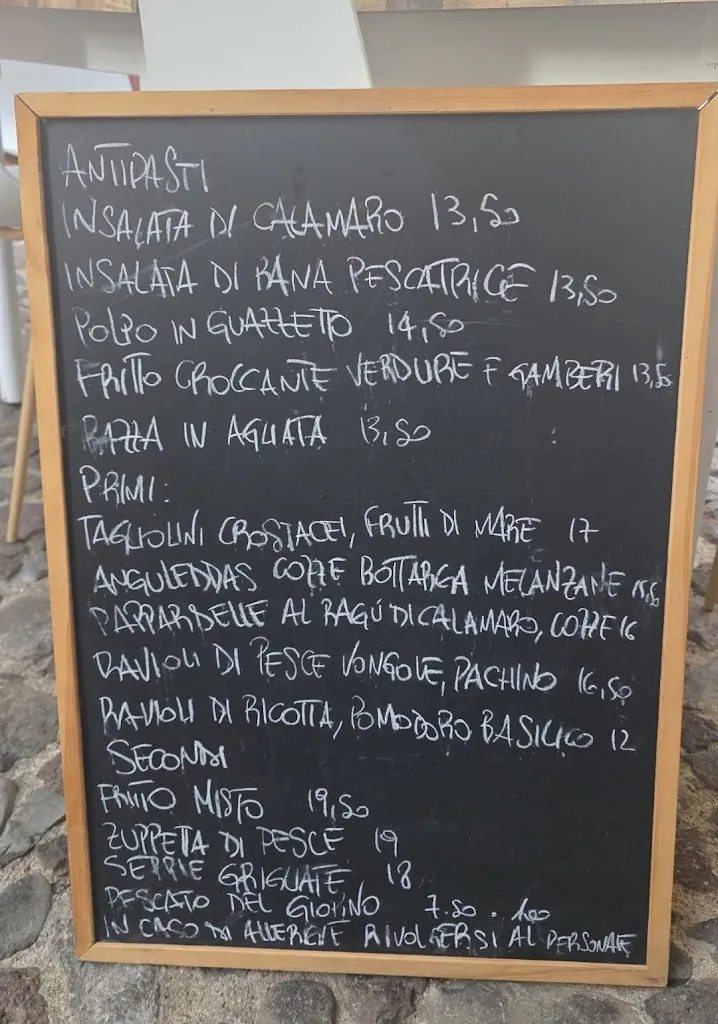 ANTIPASTI
INSALATA DI CALAMARO 13,50
INSALATA DI RANA PESCATRICE 13,50
POLPO IN GUAZZETTO 14,50
FRITTO CROCCANTE VERDURE E GAMBERI 13,50
RAZZA IN AGLIATA 13,50
PRIMI:
TAGLIOLINI CROSTACEI, FRUTTI DI MARE 17
ANGULEDDAS COZZE BOTTARGA MELANZANE 15,50
PAPPARDELLE AL RAGÚ DI CALAMARO, COZZE 16
RAVIOLI DI PESCE VONGOLE, PACHINO 16,50
RAVIOLI DI RICOTTA, POMODORO BASILICO 12
SECONDI
FRITTO MISTO 19,50
ZUPPETA DI PESCE 19
SEPPIE GRIGLIATE 18
PESCATO DEL GIORNO 7.50
IN CASO DI ALLERGIE RIVOLGERSI AL PERSONALE